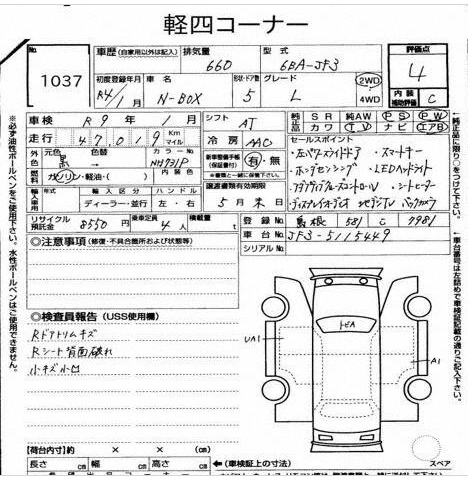 軽四コーナー
No. 1037
車歴 (自家用以外は記入) 排気量 660 型式 6BA-JF3
評価点 4
内装補助評価 C
初度登録年月 R4/1月 車名 N-BOX 形状・ドア数 5 グレード L 2WD 4WD
車検 R9年1月 シフト AT
純正品 SR 純正AW PS PW
社外品 カワ TV ナビ エアB
走行 47,019 Km マイル 冷房 AAC
セールスポイント
外色 元色 黒 色替 カラーNo. NH731P 内装色
新車整備手帳(保証書付) 有・無
・左パワースライドドア ・スマートキー
・ホンダセンシング ・LEDヘッドライト
燃料 ガソリン・軽油・( )
・アダプティブクルーズコントロール ・シートヒーター
・ディスプレイオーディオ 地デジTV バックカメラ
輸入車用 輸入区分 ディーラー・並行 ハンドル 左・右
譲渡書類有効期限 5月末日
リサイクル預託金 8550円 乗車定員 4名 積載量 t
登録No. 島根 581 C 7981
車台No. JF3-5115449
シリアルNo.
◎注意事項 (修復・不具合箇所および状態等)
◎検査員報告 (USS使用欄)
Rドアトリムキズ
Rシート背面破れ
小キズ小凹
トビA
UA1
A1
スペア
【荷台内寸】約 × × cm
長さ cm 幅 cm 高さ cm ←(車検証上の寸法)
※必ず油性ボールペンをご使用下さい。水性ボールペンはご使用できません。
←純正品に限り○をつけて下さい。
←車台番号は左詰めで車検証記載の通りご記入下さい。